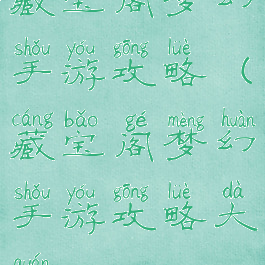 藏宝阁梦幻
shǒu yóu gōng lüè
手游攻略（
cáng bǎo gé mèng huàn
藏宝阁梦幻
shǒu yóu gōng lüè dà
手游攻略大